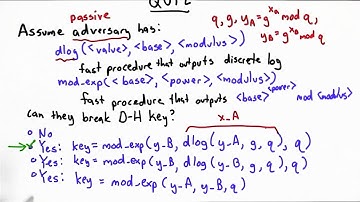 QUIZ
passive
Assume adversary has:
q, g, y_A = g^x_A mod q,
y_B = g^x_B mod q
dlog(<value>, <base>, <modulus>)
fast procedure that outputs discrete log
mod_exp(<base>, <power>, <modulus>)
fast procedure that outputs <base>^<power> mod <modulus>
can they break D-H key?
x_A
No
Yes: key = mod_exp(y_B, dlog(y_A, g, q), q)
Yes: key = mod_exp(y_B, dlog(y_B, g, q), q)
Yes: key = mod_exp(y_A, y_B, q)